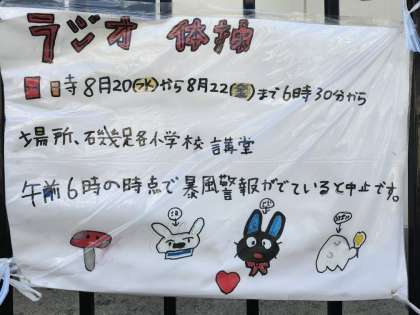 ラジオ 体操
日時 8月20(水)から8月22(金)まで6時30分から
場所、磯幾足各小学校 講堂
午前6時の時点で暴風警報がでていると中止です。